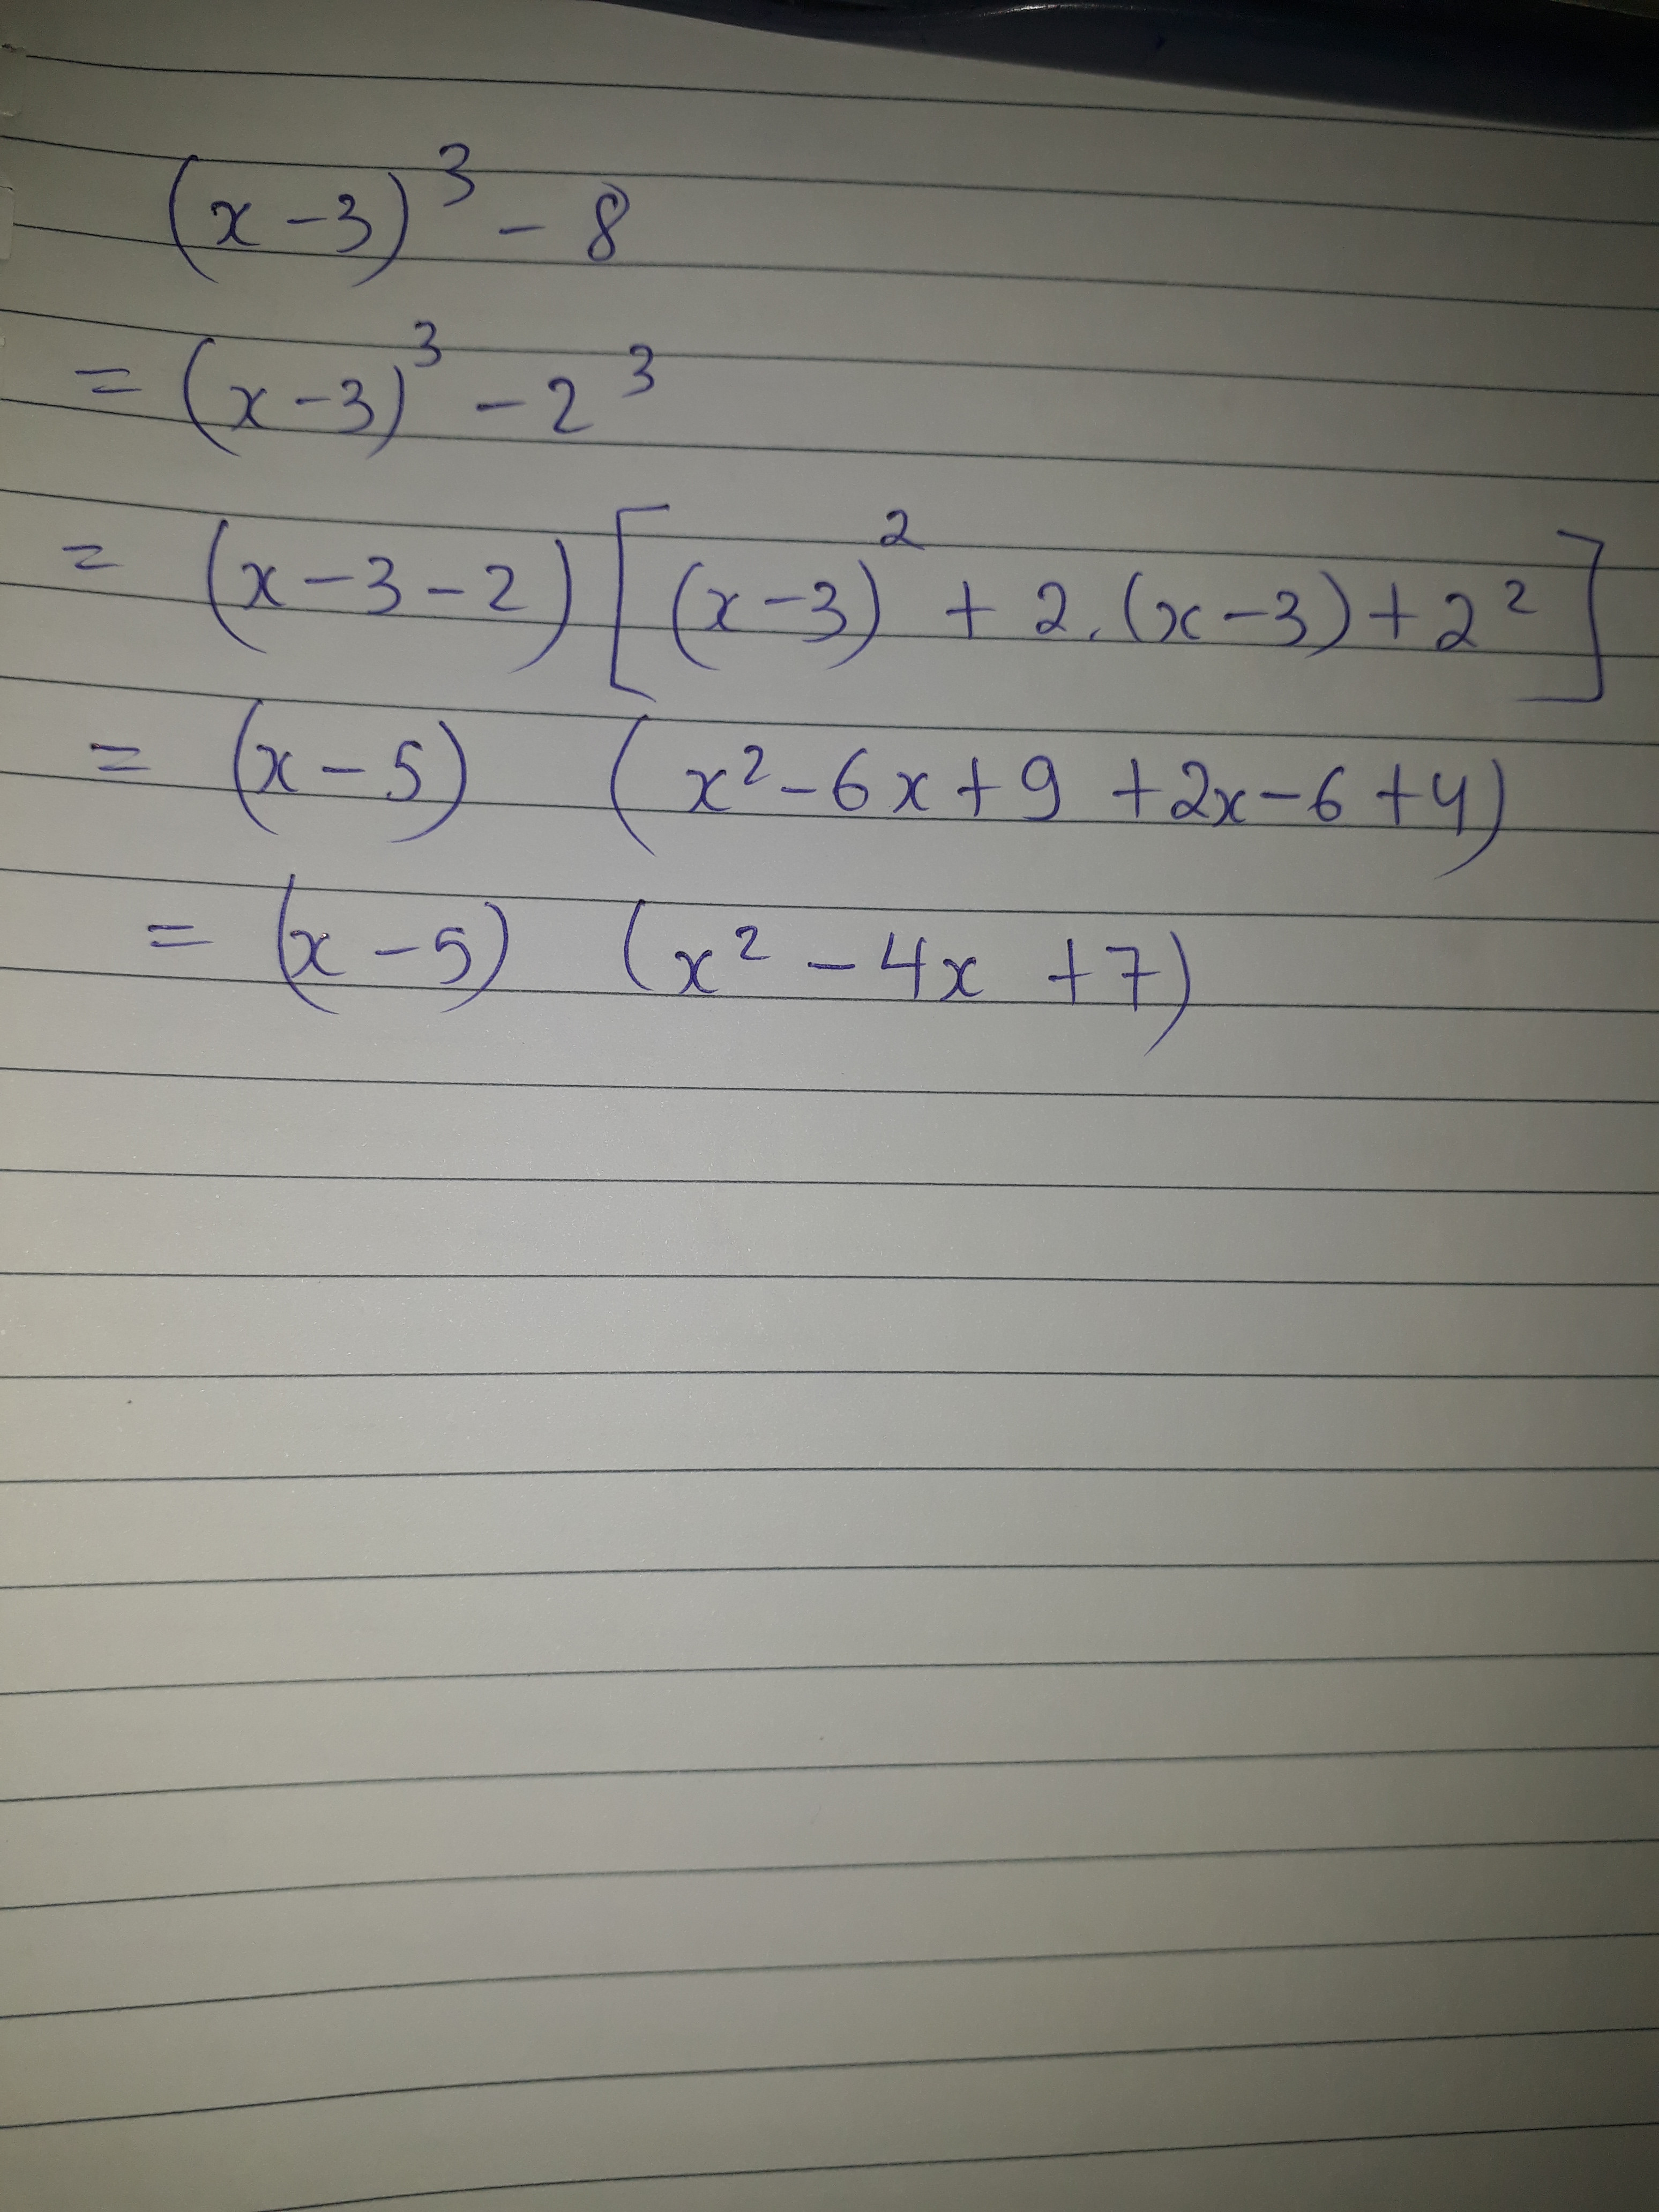 (x-3)³ - 8
= (x-3)³ - 2³
= (x-3-2) [(x-3)² + 2.(x-3) + 2²]
= (x-5) (x²-6x+9 +2x-6+4)
= (x-5) (x² - 4x +7)